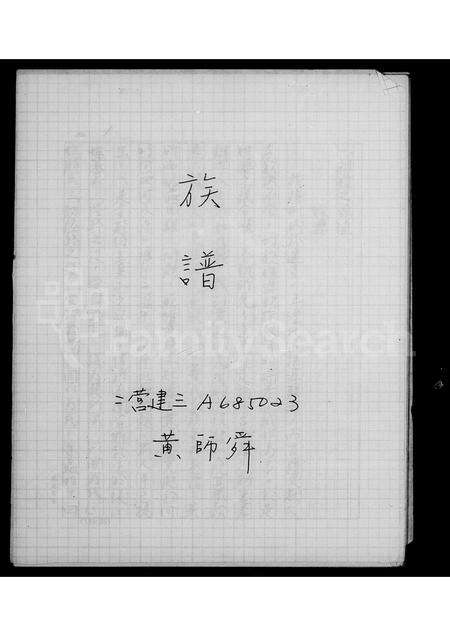 族
譜
二營建三 A685023
黃師舜
FamilySearch